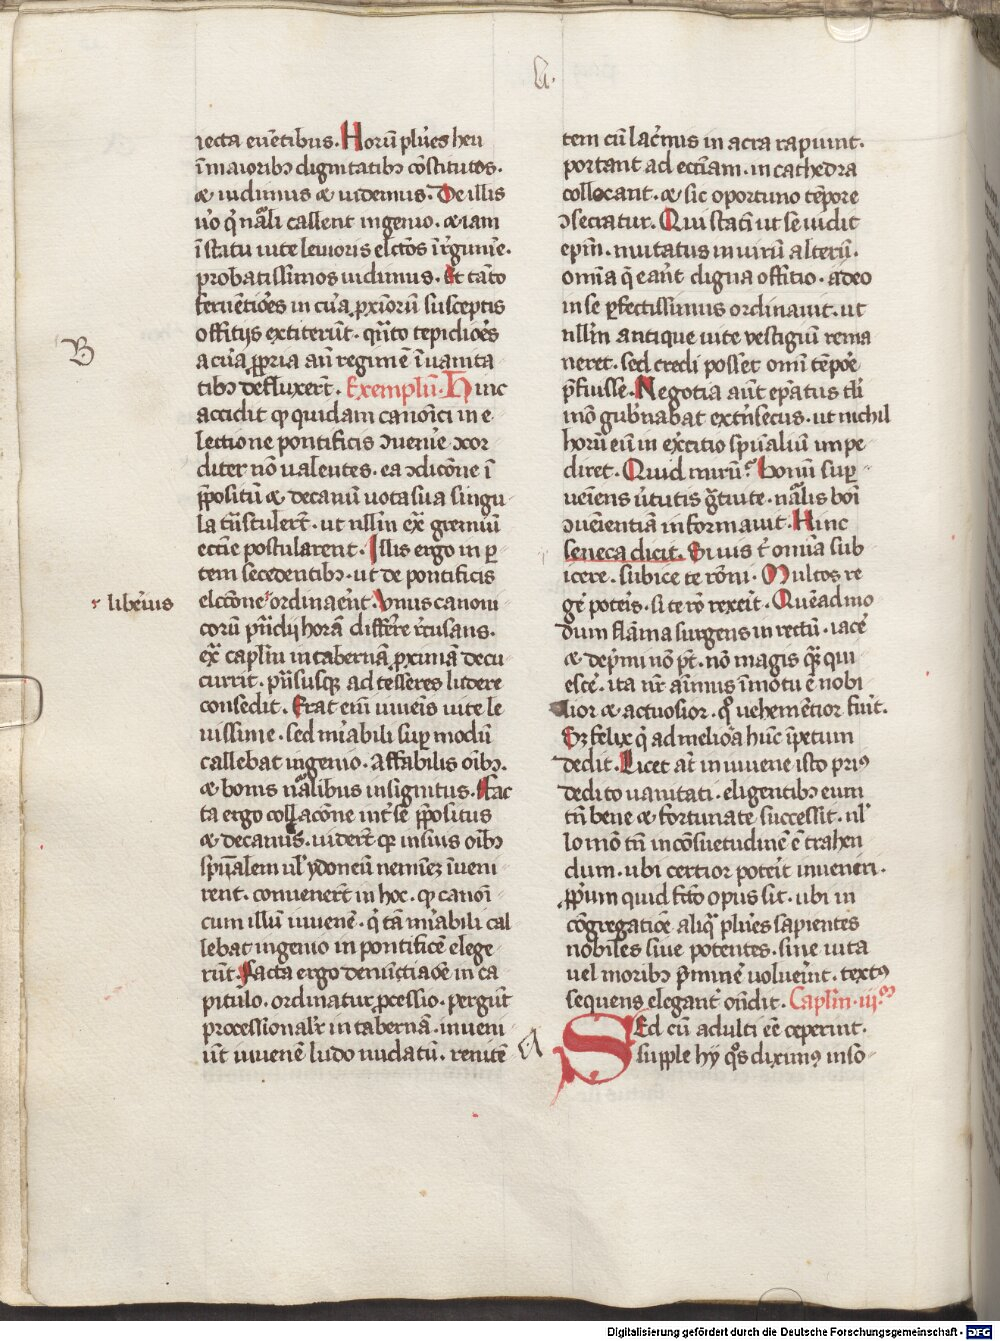 a.
iecta euētibus. Horū plures heu
ī maioribꝫ dignitatibꝫ cōstitutos.
⁊ uidimus ⁊ uidemus. De illis
uo q̄ nāli callent ingenio. ⁊ iam
ī statu uite leuioris
probatissimos uidimus. Et tanto
feruētiores in cura ꝓximorū susceptis
offitijs extiterūt. quāto tepidiores
a cura ꝓpria añ regimē ī uanita
tibꝫ defluxerūt. Exemplū. Hinc
accidit qꝫ quidam canonici in e-
lectione pontificis ꝯuenire ꝯcor
diter nō ualentes. ea ꝯdicōne ī
p̄positū ⁊ decanū uota sua singu-
la trāstulerūt. ut nllm̄ ex gremiū
eccīe postularent. Illis ergo in par
tem secedentibꝫ. ut de pontificis
elctōne ordinarent. Vnus canoni-
corū prādij horā differre recusans.
extra caplm̄ in tabernā ꝓximā decu-
currit. prāsusqꝫ ad tesseres ludere
consedit. Erat enī iuuenis uite le
uissime. sed mirabili super modū
callebat ingenio. Affabilis oībꝫ.
⁊ bonis nālibus insignitus. Fac
ta ergo collacōne inter se p̄positus
⁊ decanus. uiderūt qꝫ in suis oībꝫ
spūalem ul' ydoneū neminē ī inueni-
rent. conuenerūt in hoc. qꝫ canoni
cum illū iuuenē. q̄ tā mirabili cal
lebat ingenio in pontificē elege-
rūt. Facta ergo denūctiacōe in ca
pitulo. ordinatur ꝓcessio. pergūt
processionalr̄ in tabernā. inueni-
ūt iuuenē ludo nudatū. renitē
B
r liberius
tem cū lacrimis in acra rapiunt.
portant ad ecclām. in cathedra
collocant. ⁊ sic oportuno tēpore
ꝯsecratur. Qui statī ut se uidit
ep̄m. mutatus in uirū alterū.
omīa q̄ erant digna offitio. adeo
in se perfectissimus ordinauit. ut
nllm̄ antique uite vestigiū rema
neret. sed credi posset omī tēpore
p̄fuisse. Negotia aūt ep̄atus tli
mō gub'nabat extrīsecus. ut nichil
horū eū in exercitio spūaliū impe-
diret. Quid mirū? bonū super-
ueniens uirtutis gratuite. nālis boni
ꝯuenientiā informauit. Hinc
seneca dicit. Si uis tibi omīa sub-
icere. subice te rōni. Multos re
ges poteris. si te ro rexerit. Quēadmo
dum flāma surgens in rectū. iacere
⁊ deprimi nō pōt. nō magis q̄ qui
escere. ita nr̄ animus ī motu ē nobi
lior ⁊ actuosior. q̄ uehemētior fuerit.
Sꝫ felix q̄ ad meliora hūc īpetum
dedit. Licet at̄ in iuuene isto prius
dedito uanitati. eligentibꝫ eum
tn̄ bene ⁊ fortunate successit. nl'
lo mō tn̄ in cōsuetudinē ē trahen
dum. ubi certior poterit inueniri.
ꝓprium quid fcto opus sit. ubi in
cōgregatiōe aliq̄ plures sapientes
nobiles siue potentes. siue uita
uel moribꝫ p̄minere uoluerint. textus
sequens eleganter ondit. Caplm̄. iij.m
A
Sed cū adulti eē ceperint.
supple hij q̄s diximus inso-
Digitalisierung gefördert durch die Deutsche Forschungsgemeinschaft - DFG